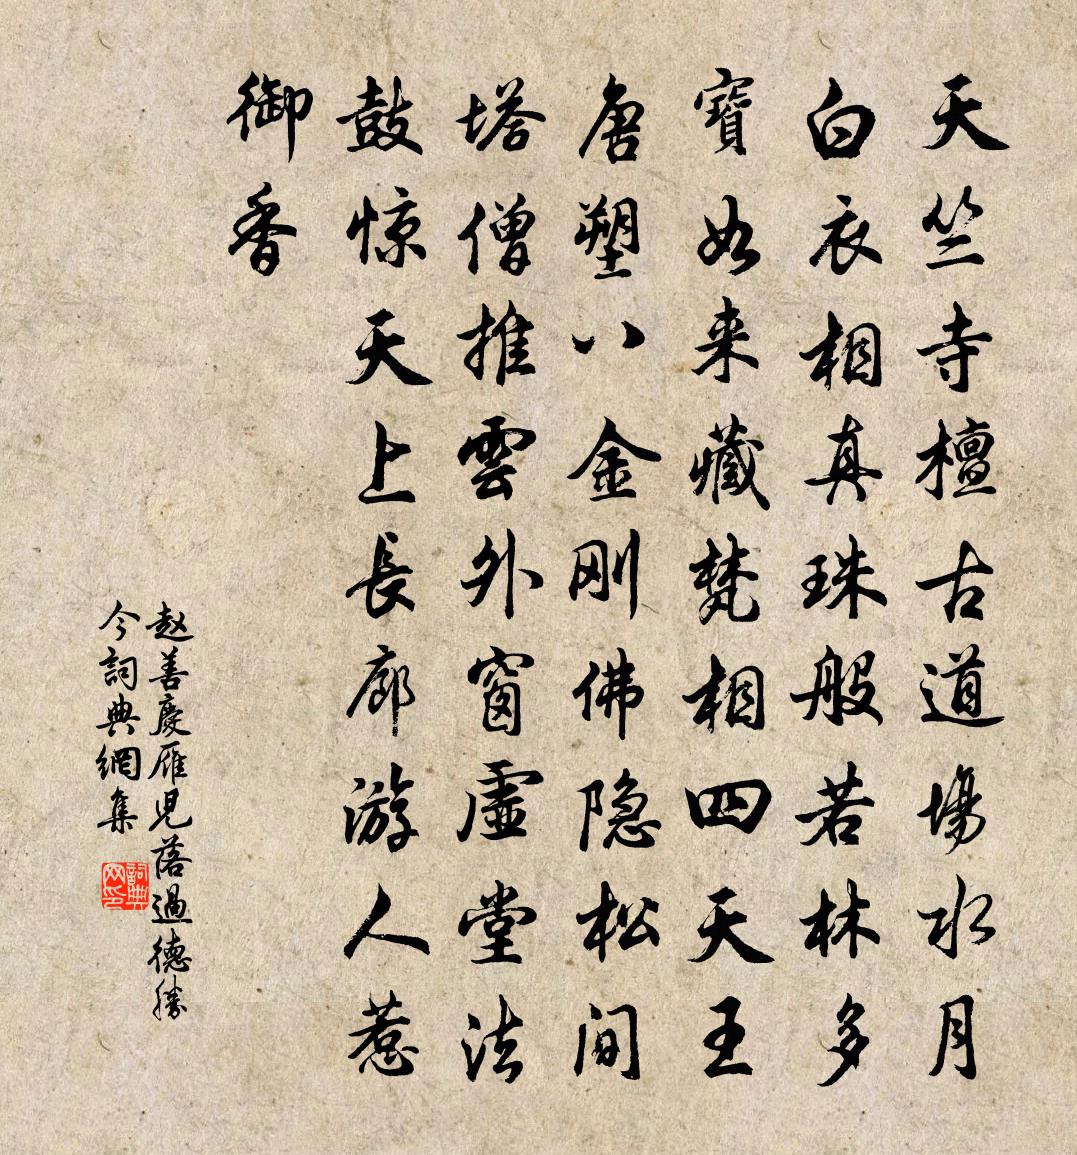 天竺寺檀古道場水月
白衣相真珠般若林多
寶如来藏梵相四天王
唐塑八金刚佛隐松间
塔僧推雲外窗虚堂法
鼓惊天上長廊游人惹
御香
赵善慶雁児落過德勝
今詞典網集
詞典网印